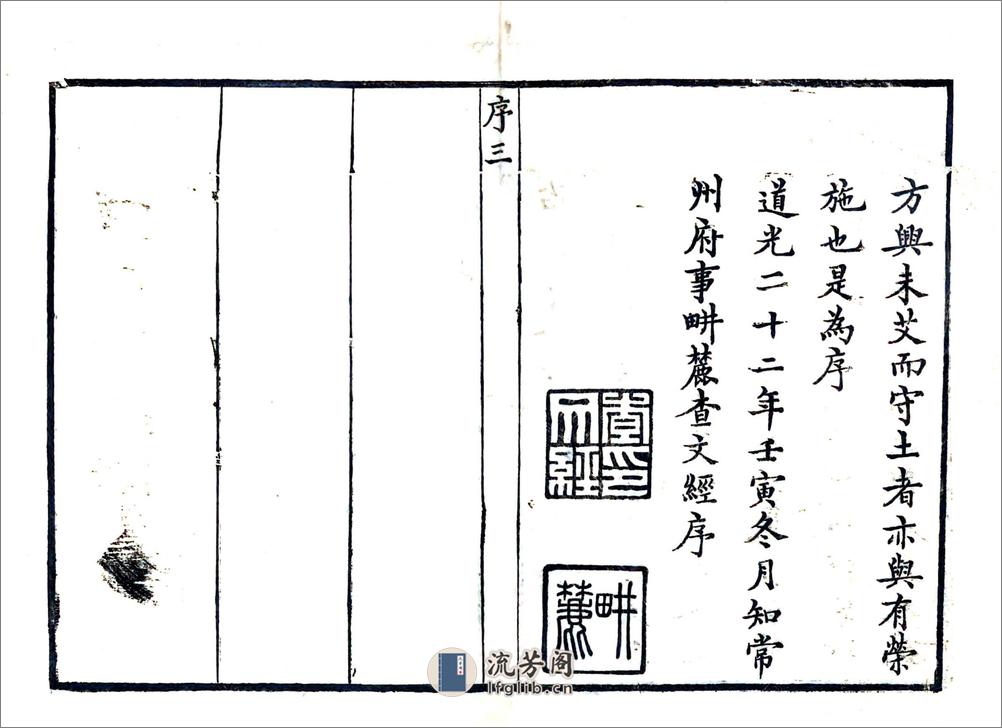 方興未艾而守土者亦與有榮
施也是為序
道光二十二年壬寅冬月知常
州府事畊麓查文經序
查文經印
畊麓
序三
流芳阁
lfglib.cn